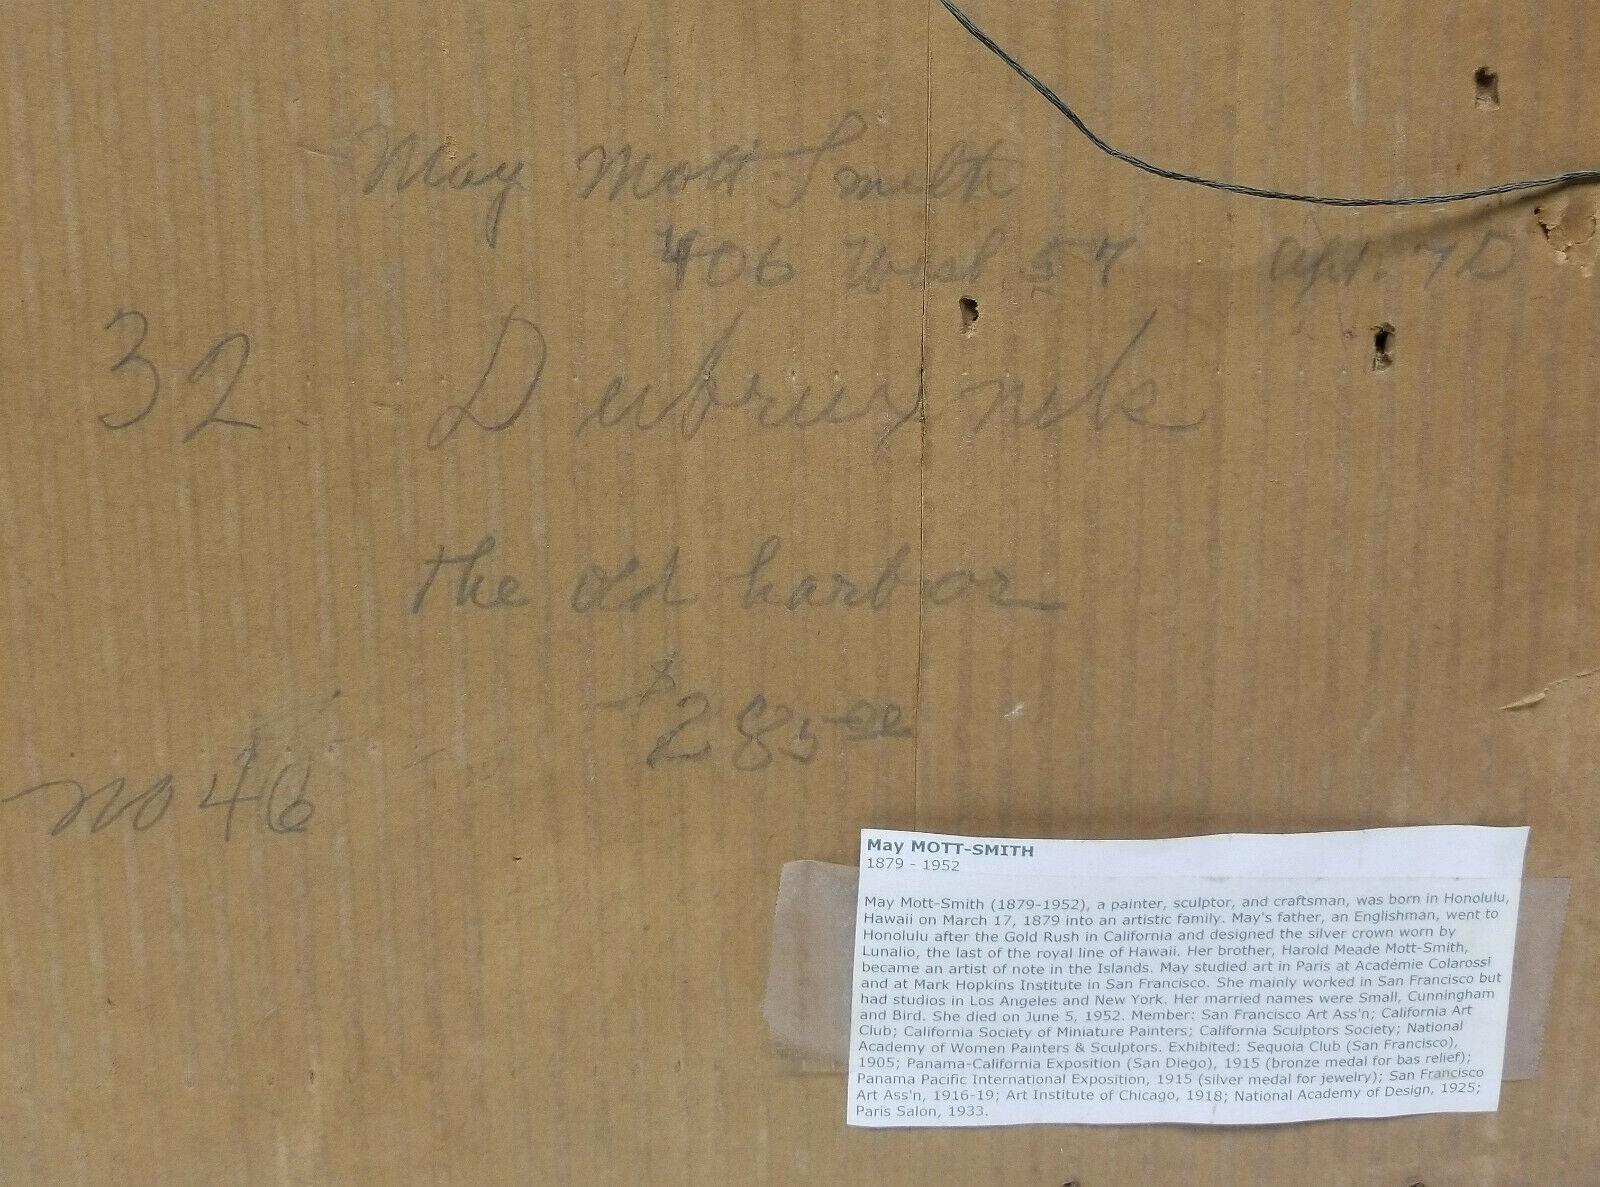 May Mott-Smith
406 West 57 apt. 7D
32 Dubruvnik
the old harbor
$285.00
no 46
May MOTT-SMITH
1879 - 1952
May Mott-Smith (1879-1952), a painter, sculptor, and craftsman, was born in Honolulu,
Hawaii on March 17, 1879 into an artistic family. May's father, an Englishman, went to
Honolulu after the Gold Rush in California and designed the silver crown worn by
Lunalio, the last of the royal line of Hawaii. Her brother, Harold Meade Mott-Smith,
became an artist of note in the Islands. May studied art in Paris at Académie Colarossi
and at Mark Hopkins Institute in San Francisco. She mainly worked in San Francisco but
had studios in Los Angeles and New York. Her married names were Small, Cunningham
and Bird. She died on June 5, 1952. Member: San Francisco Art Ass'n; California Art
Club; California Society of Miniature Painters; California Sculptors Society; National
Academy of Women Painters & Sculptors. Exhibited: Sequoia Club (San Francisco),
1905; Panama-California Exposition (San Diego), 1915 (bronze medal for bas relief);
Panama Pacific International Exposition, 1915 (silver medal for jewelry); San Francisco
Art Ass'n, 1916-19; Art Institute of Chicago, 1918; National Academy of Design, 1925;
Paris Salon, 1933.